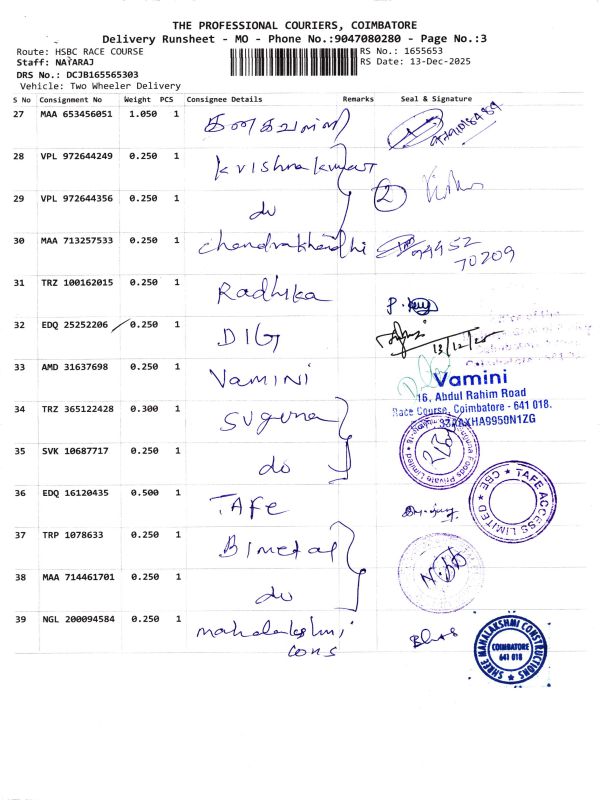 THE PROFESSIONAL COURIERS, COIMBATORE
Delivery Runsheet - MO - Phone No.:9047080280 - Page No.:3
Route: HSBC RACE COURSE
Staff: NATARAJ
DRS No.: DCJB165565303
Vehicle: Two Wheeler Delivery
RS No.: 1655653
RS Date: 13-Dec-2025
S No Consignment No Weight PCS Consignee Details Remarks Seal & Signature
27 MAA 653456051 1.050 1
28 VPL 972644249 0.250 1 Krishnakumar
29 VPL 972644356 0.250 1 do 2
30 MAA 713257533 0.250 1 Chendrakhandhi 94452
70209
31 TRZ 100162015 0.250 1 Radhika
32 EDQ 25252206 0.250 1 DIG 13/12/25
33 AMD 31637698 0.250 1 Vamini
Vamini
16, Abdul Rahim Road
Race Course, Coimbatore - 641 018.
34 TRZ 365122428 0.300 1 Suguna
35 SVK 10687717 0.250 1 do
Foods Private Limited
36 EDQ 16120435 0.500 1 TAFE
TAFE ACCESS LIMITED CBE
37 TRP 1078633 0.250 1 Bimetal
38 MAA 714461701 0.250 1 do
39 NGL 200094584 0.250 1 mahalakshmi
cons
SHREE MAHALAKSHMI CONSTRUCTIONS
COIMBATORE
641 018